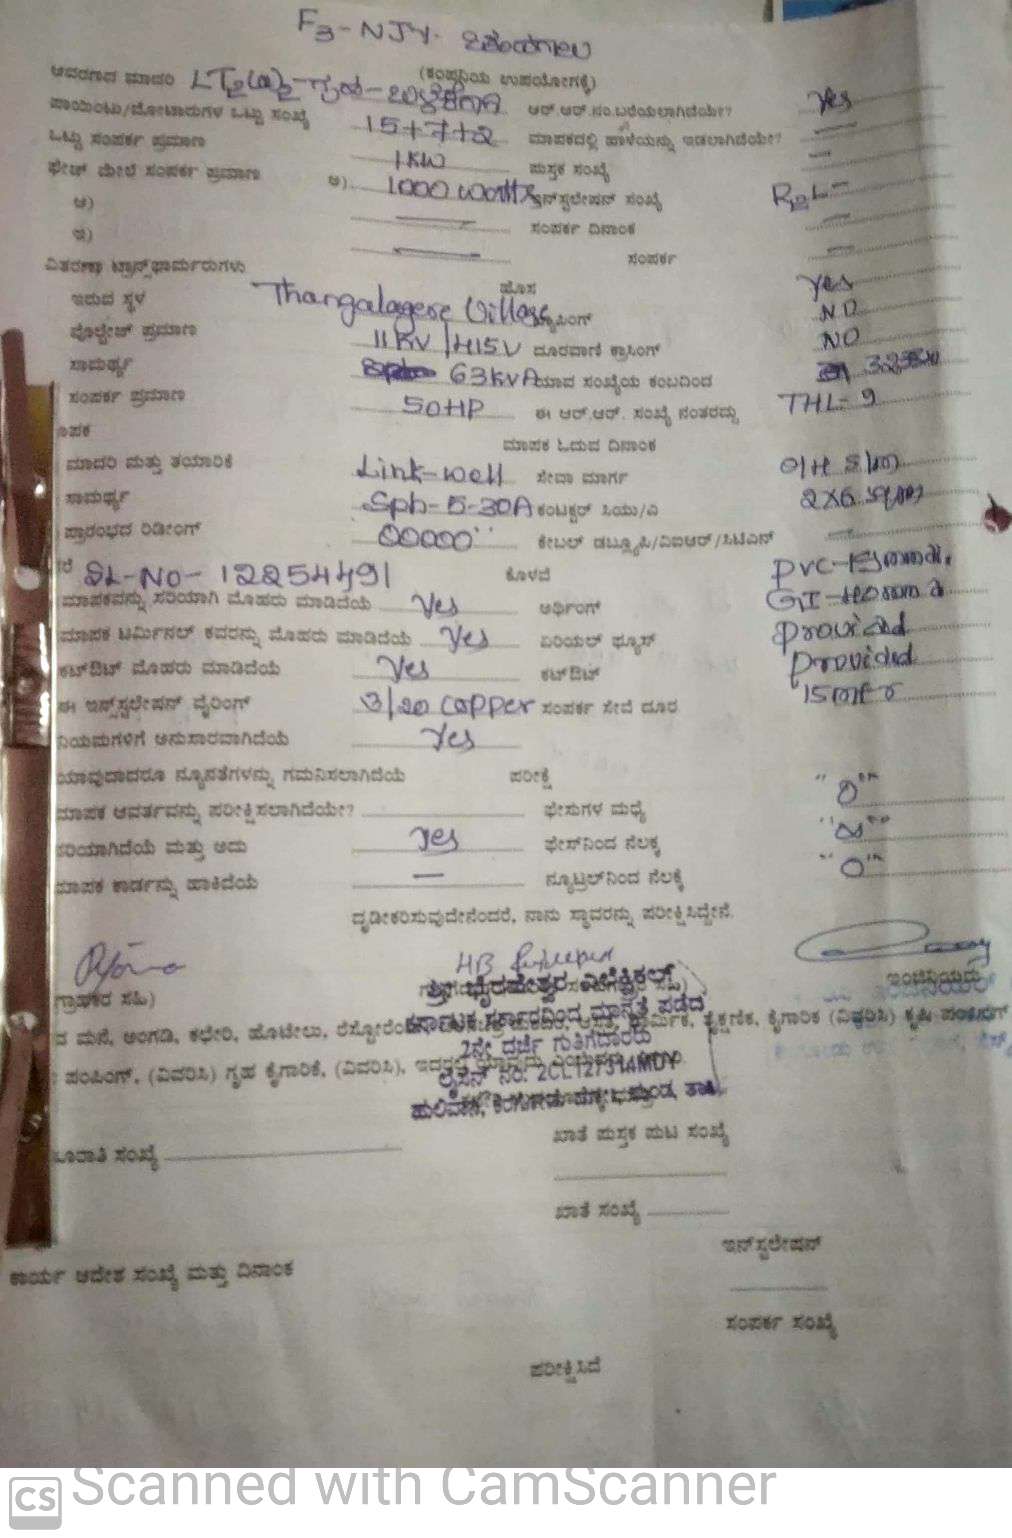 F3-NJY.
(ಕಂಪನಿಯ ಉಪಯೋಗಕ್ಕೆ)
ಆವರಣದ ಮಾದರಿ LT2(a)2-ಗೃಹ-ಬಳಕೆದಾರ ಆರ್.ಆರ್.ನಂ.ಬರೆಯಲಾಗಿದೆಯೇ? yes
ಪಾಯಿಂಟು/ಮೋಟಾರುಗಳ ಒಟ್ಟು ಸಂಖ್ಯೆ 15+7+2 ಮಾಪಕದಲ್ಲಿ ಹಾಳೆಯನ್ನು ಇಡಲಾಗಿದೆಯೇ?
ಒಟ್ಟು ಸಂಪರ್ಕ ಪ್ರಮಾಣ 1KW ಪುಸ್ತಕ ಸಂಖ್ಯೆ
ಫೇಜ್ ಮೇಲೆ ಸಂಪರ್ಕ ಪ್ರಮಾಣ ಅ) 1000 watts ಇನ್‌ಸ್ಟಲೇಷನ್ ಸಂಖ್ಯೆ
ಆ) ಸಂಪರ್ಕ ದಿನಾಂಕ
ಇ) ಸಂಪರ್ಕ
ವಿತರಣಾ ಟ್ರಾನ್ಸ್‌ಫಾರ್ಮರುಗಳು ಹೊಸ yes
ಇರುವ ಸ್ಥಳ Thangalagere Village ಕ್ರಾಸಿಂಗ್ NO
ವೋಲ್ಟೇಜ್ ಪ್ರಮಾಣ 11KV/415V ದೂರವಾಣಿ ಕ್ರಾಸಿಂಗ್ NO
ಸಾಮರ್ಥ್ಯ 63KVA ಯಾವ ಸಂಖ್ಯೆಯ ಕಂಬದಿಂದ
ಸಂಪರ್ಕ ಪ್ರಮಾಣ 50HP ಈ ಆರ್.ಆರ್. ಸಂಖ್ಯೆ ನಂತರದ್ದು THL-9
ಮಾಪಕ ಮಾಪಕ ಓದುವ ದಿನಾಂಕ
ಮಾದರಿ ಮತ್ತು ತಯಾರಿಕೆ Link-well ಸೇವಾ ಮಾರ್ಗ O/H
ಸಾಮರ್ಥ್ಯ Sph-5-30A ಕಂಟಕ್ಟರ್ ಸಿಯು/ಎ 2X6 sqmm
ಪ್ರಾರಂಭದ ರಿಡೀಂಗ್ 00000 ಕೇಬಲ್ ಡಬ್ಲ್ಯೂಪಿ/ವಿಐಆರ್/ಸಿಟಿಎನ್
SL-No- 12254491 ಕೊಳವೆ PVC-
ಮಾಪಕವನ್ನು ಸರಿಯಾಗಿ ಮೊಹರು ಮಾಡಿದೆಯೆ Yes ಅರ್ಥಿಂಗ್ GI-
ಮಾಪಕ ಟರ್ಮಿನಲ್ ಕವರನ್ನು ಮೊಹರು ಮಾಡಿದೆಯೆ Yes ಏರಿಯಲ್ ಫ್ಯೂಸ್ provided
ಕಟ್‌ಔಟ್ ಮೊಹರು ಮಾಡಿದೆಯೆ Yes ಕಟ್‌ಔಟ್ provided
ಈ ಇನ್ಸ್‌ಸ್ಟಲೇಷನ್ ವೈರಿಂಗ್ 3/20 copper ಸಂಪರ್ಕ ಸೇವೆ ದೂರ 15mtr
ನಿಯಮಗಳಿಗೆ ಅನುಸಾರವಾಗಿದೆಯೆ Yes
ಯಾವುದಾದರೂ ನ್ಯೂನತೆಗಳನ್ನು ಗಮನಿಸಲಾಗಿದೆಯೆ ಪರೀಕ್ಷೆ
ಮಾಪಕ ಆವರ್ತವನ್ನು ಪರೀಕ್ಷಿಸಲಾಗಿದೆಯೇ? ಫೇಸುಗಳ ಮಧ್ಯೆ
ಸರಿಯಾಗಿದೆಯೆ ಮತ್ತು ಅದು yes ಫೇಸ್‌ನಿಂದ ನೆಲಕ್ಕೆ
ಮಾಪಕ ಕಾರ್ಡನ್ನು ಹಾಕಿದೆಯೆ — ನ್ಯೂಟ್ರಲ್‌ನಿಂದ ನೆಲಕ್ಕೆ
ದೃಡೀಕರಿಸುವುದೇನೆಂದರೆ, ನಾನು ಸ್ಥಾವರನ್ನು ಪರೀಕ್ಷಿಸಿದ್ದೇನೆ.
(ಗ್ರಾಹಕರ ಸಹಿ) ಇಂಜಿನಿಯರು
ಶ್ರೀ ಭೈರವೇಶ್ವರ ಎಲೆಕ್ಟ್ರಿಕಲ್ಸ್
ಕರ್ನಾಟಕ ಸರ್ಕಾರದಿಂದ ಮಾನ್ಯತೆ ಪಡೆದ
2ನೇ ದರ್ಜೆ ಗುತ್ತಿಗೆದಾರರು
ಲೈಸೆನ್ಸ್ ನಂ. 2CL127314MDY
ಮನೆ, ಅಂಗಡಿ, ಕಛೇರಿ, ಹೊಟೇಲು, ಶೈಕ್ಷಣಿಕ, ಕೈಗಾರಿಕ (ವಿವರಿಸಿ) ಕೃಷಿ ಪಂಪಿಂಗ್
ಪಂಪಿಂಗ್, (ವಿವರಿಸಿ) ಗೃಹ ಕೈಗಾರಿಕೆ, (ವಿವರಿಸಿ),
ಖಾತೆ ಪುಸ್ತಕ ಪುಟ ಸಂಖ್ಯೆ
ಸಂಖ್ಯೆ
ಖಾತೆ ಸಂಖ್ಯೆ
ಇನ್‌ಸ್ಟಲೇಷನ್
ಕಾರ್ಯ ಆದೇಶ ಸಂಖ್ಯೆ ಮತ್ತು ದಿನಾಂಕ
ಸಂಪರ್ಕ ಸಂಖ್ಯೆ
ಪರೀಕ್ಷಿಸಿದೆ
CS Scanned with CamScanner